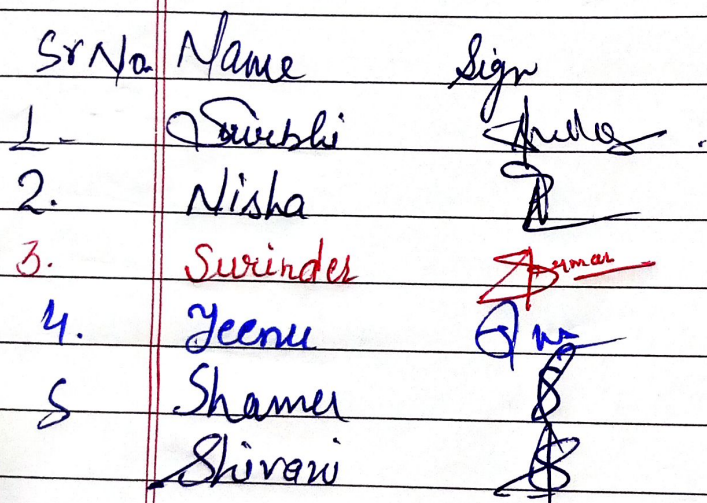 Sr No. Name Sign
1. Surbhi
2. Nisha
3. Surinder
4. Jeenu
5 Shamer
Shivani